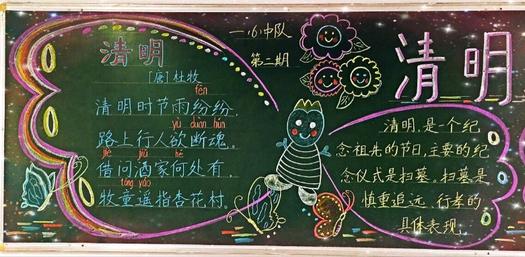 清明
[唐]杜牧
fēn
清明时节雨纷纷,
yù duàn hún
路上行人欲断魂。
jiè jiǔ hé
借问酒家何处有,
tóng yáo
牧童遥指杏花村.
一(6)中队
第二期
清明
清明,是一个纪
念祖先的节日,主要的纪
念仪式是扫墓。扫墓是
慎重追远、行孝的
具体表现。